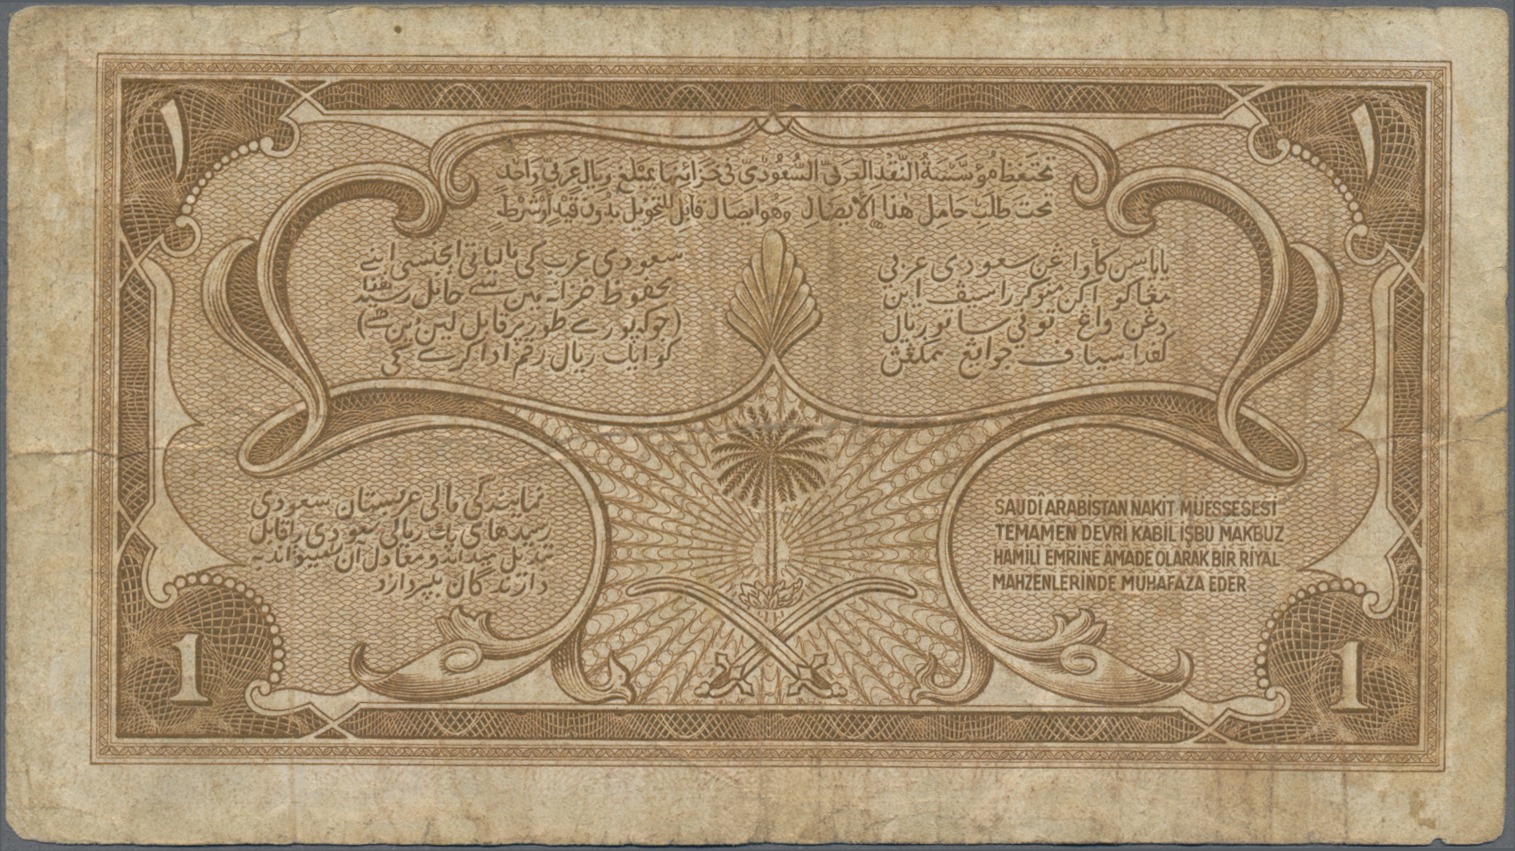 ١
١
تحتفظ مؤسسة النقد العربي السعودي في خزائنها بمبلغ ريال عربي واحد
تحت طلب حامل هذا الإيصال وهو ايصال قابل للتحويل بدون قيد أو شرط
سعودی عرب کی مالیاتی ایجنسی اپنے
محفوظ خزانہ میں سے حامل رسید ھذا
(جو کہ پورے طور پر قابل لین دین ھے)
کو ایک ریال رقم ادا کرے گی
سعودي عربي
ريال
نمایندگی مالی عربستان سعودی
رسیدهای یک ریالی سعودی را قابل
تبدیل میداند و معادل آن
بپردازد
SAUDÎ ARABİSTAN NAKIT MUESSESESİ
TEMAMEN DEVRİ KABİL İŞBU MAKBUZ
HAMİLİ EMRİNE AMADE OLARAK BİR RİYAL
MAHZENLERİNDE MUHAFAZA EDER
1
1